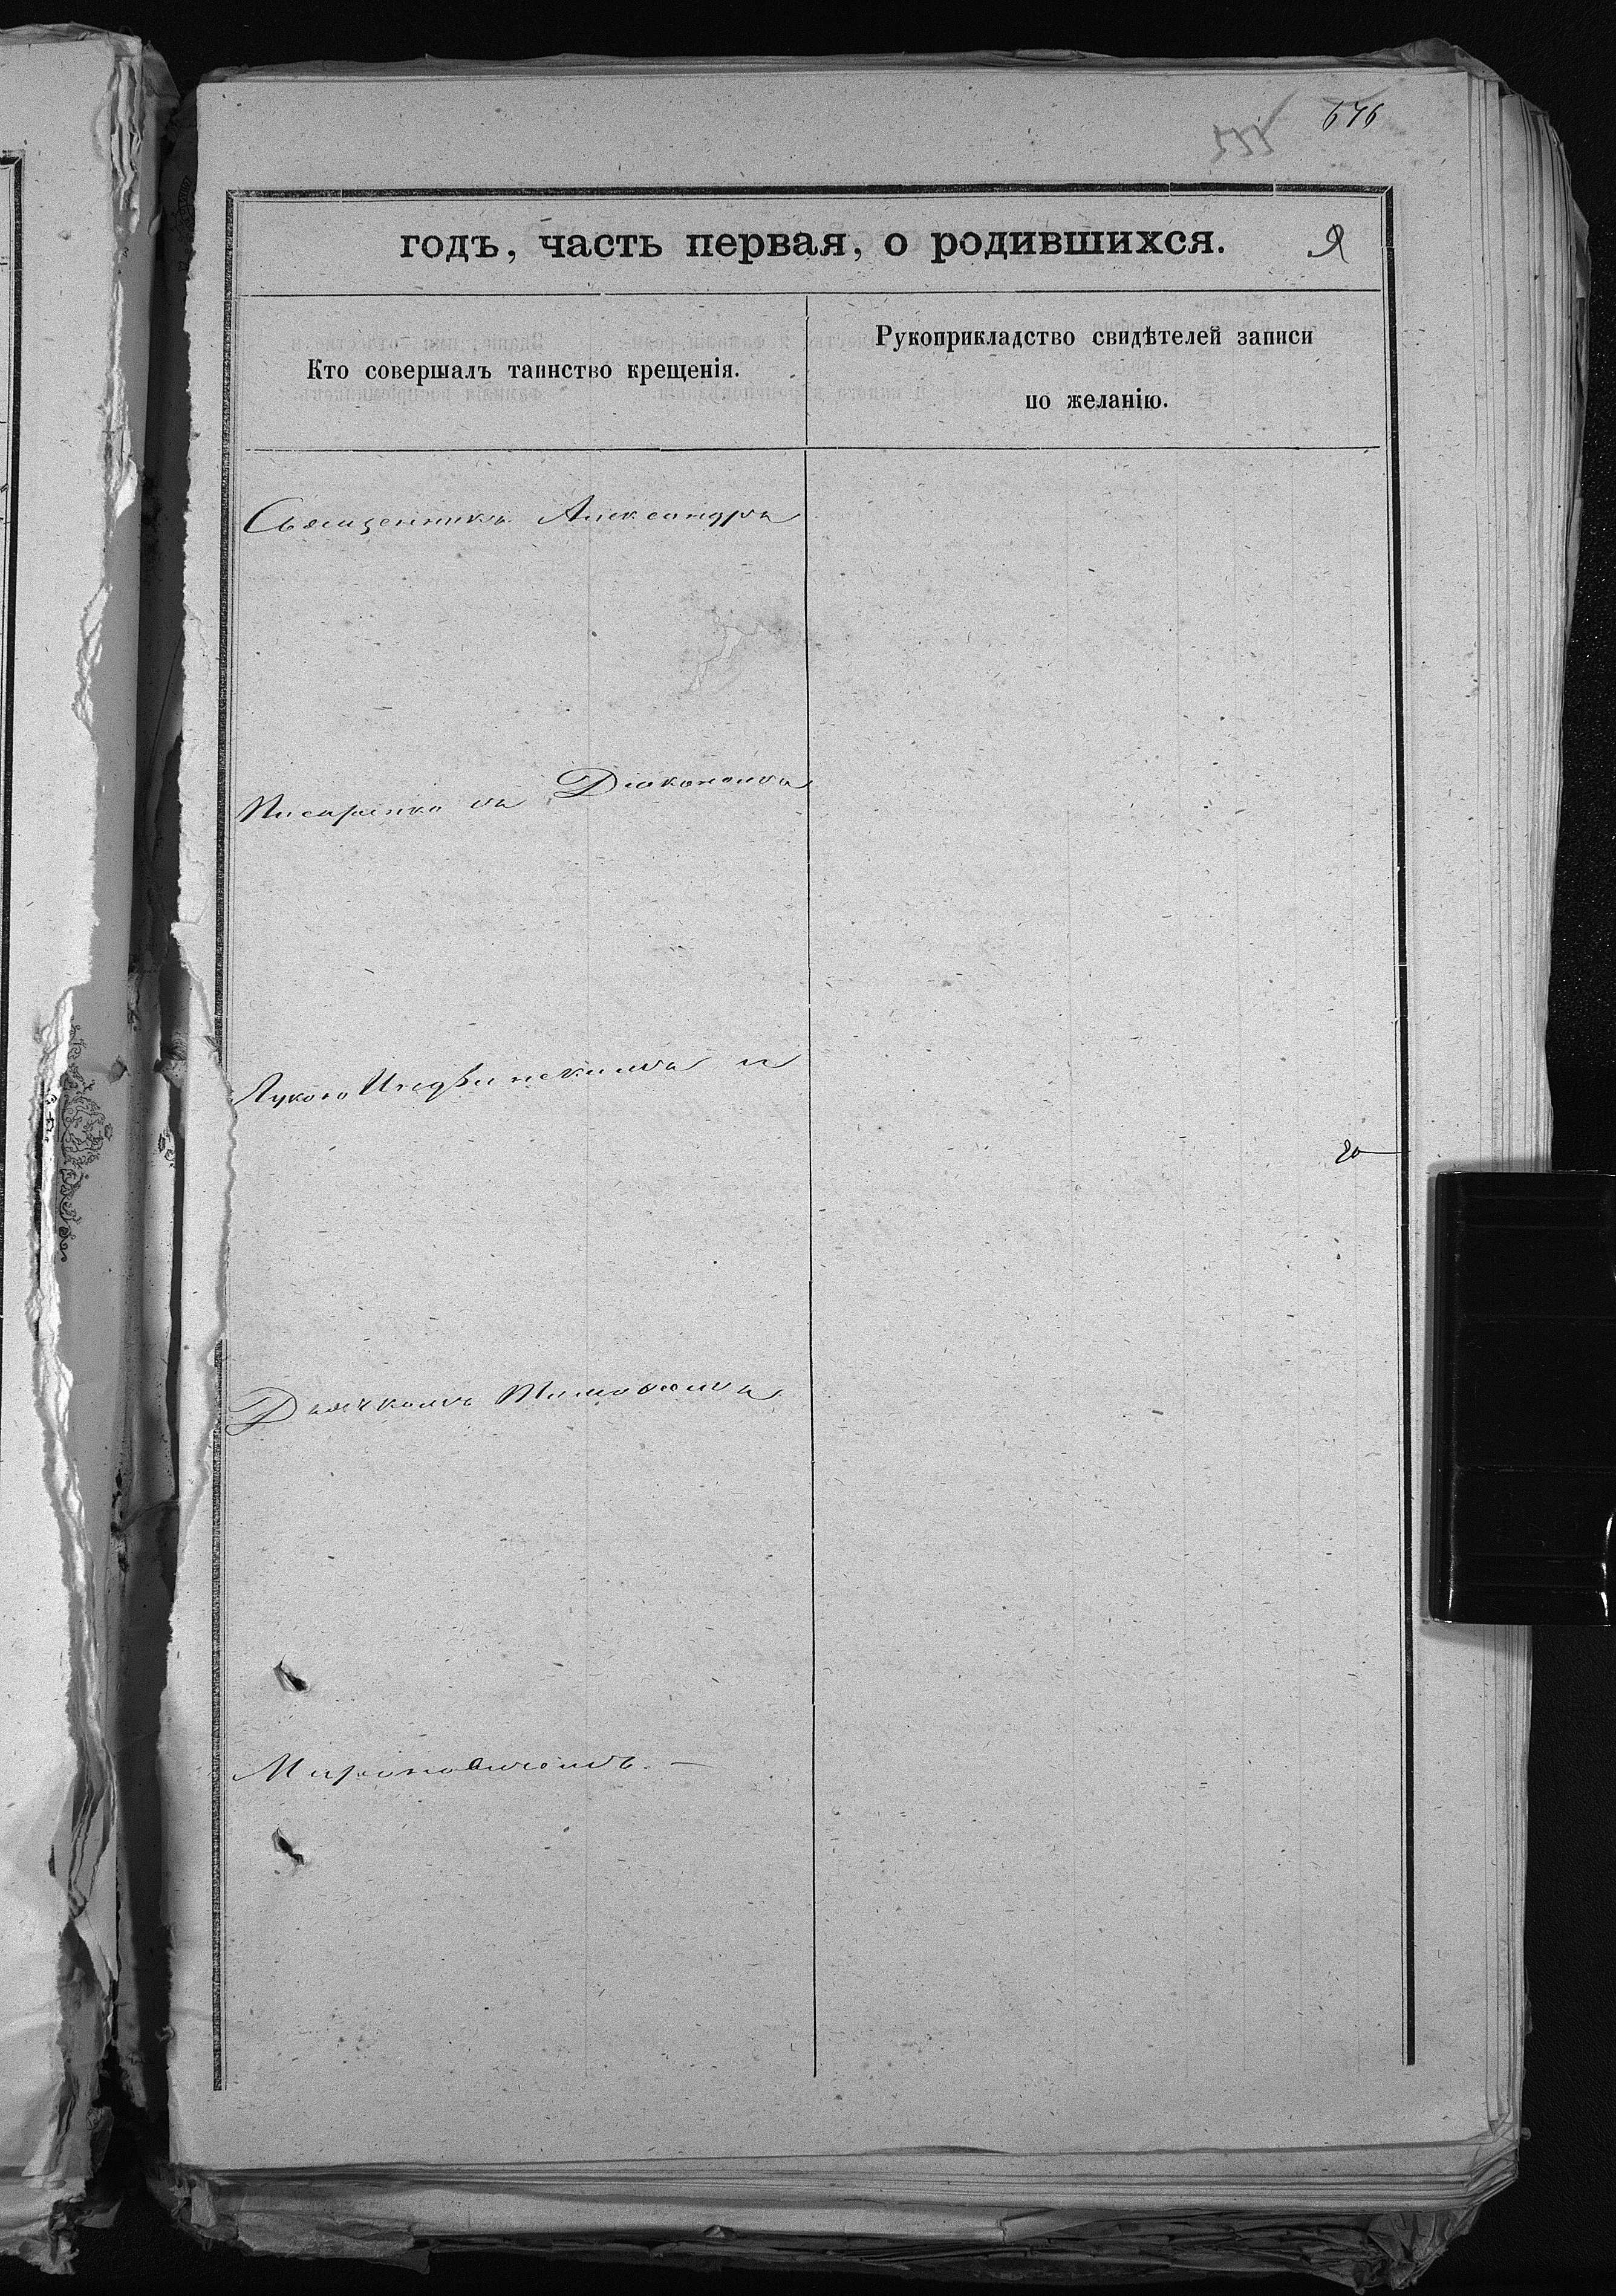 676
годъ, часть первая, о родившихся.
Кто совершалъ таинство крещенія.
Рукоприкладство свидѣтелей записи
по желанію.
Священникъ Александръ
Писаренко съ Діакономъ
Лукою и
Дьячкомъ Тимофеемъ
Мироновичемъ. —